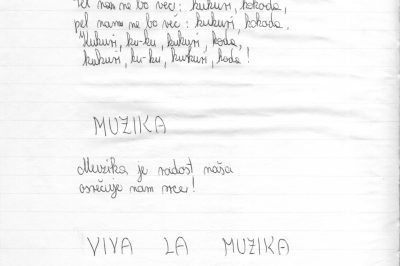 pel nam ne bo več: kukuri, kokoda,
pel nam ne bo več: kukuri, kokoda.
Kukuri, ku-ku, kukuri, koda,
kukuri, ku-ku, kukuri, koda!
MUZIKA
Muzika je radost naša
osrečuje nam srce!
VIVA LA MUZIKA